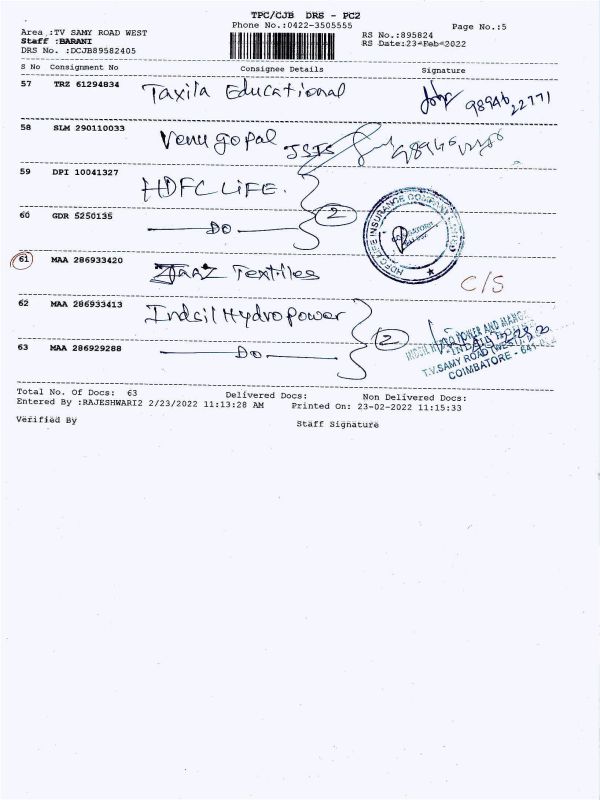 TPC/CJB DRS - PC2
Phone No.:0422-3505555
Page No.:5
Area :TV SAMY ROAD WEST
Staff :BARANI
DRS No. :DCJB89582405
RS No.:895824
RS Date:23-Feb-2022
S No Consignment No Consignee Details Signature
57 TRZ 61294834 Taxila Educational 9894622771
58 SLM 290110033 Venu gopal
59 DPI 10041327 HDFC LIFE.
60 GDR 5250135 DO 2
HDFC LIFE INSURANCE COMPANY LIMITED
61 MAA 286933420 Textiles C/S
62 MAA 286933413 Indsil Hydro Power
63 MAA 286929288 DO 2
INDSIL HYDRO POWER AND MANG
T.V.SAMY ROAD (WEST)
COIMBATORE - 641
Total No. Of Docs: 63 Delivered Docs: Non Delivered Docs:
Entered By :RAJESHWARI2 2/23/2022 11:13:28 AM Printed On: 23-02-2022 11:15:33
Verified By Staff Signature